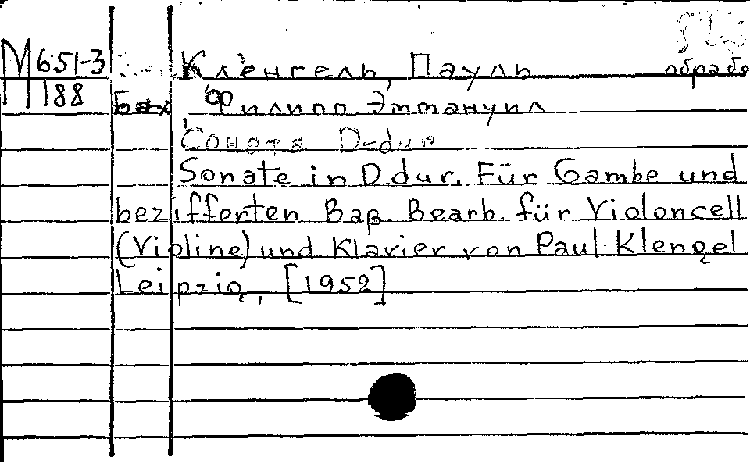 М 651-3 Кленгель, Пауль обрабо
188 Бах Филипп Эммануил
Соната D-dur
Sonate in D dur. Für Gambe und
bezifferten Baß. Bearb. für Violoncell
(Violine) und Klavier von Paul Klengel
Leipzig, [1952]